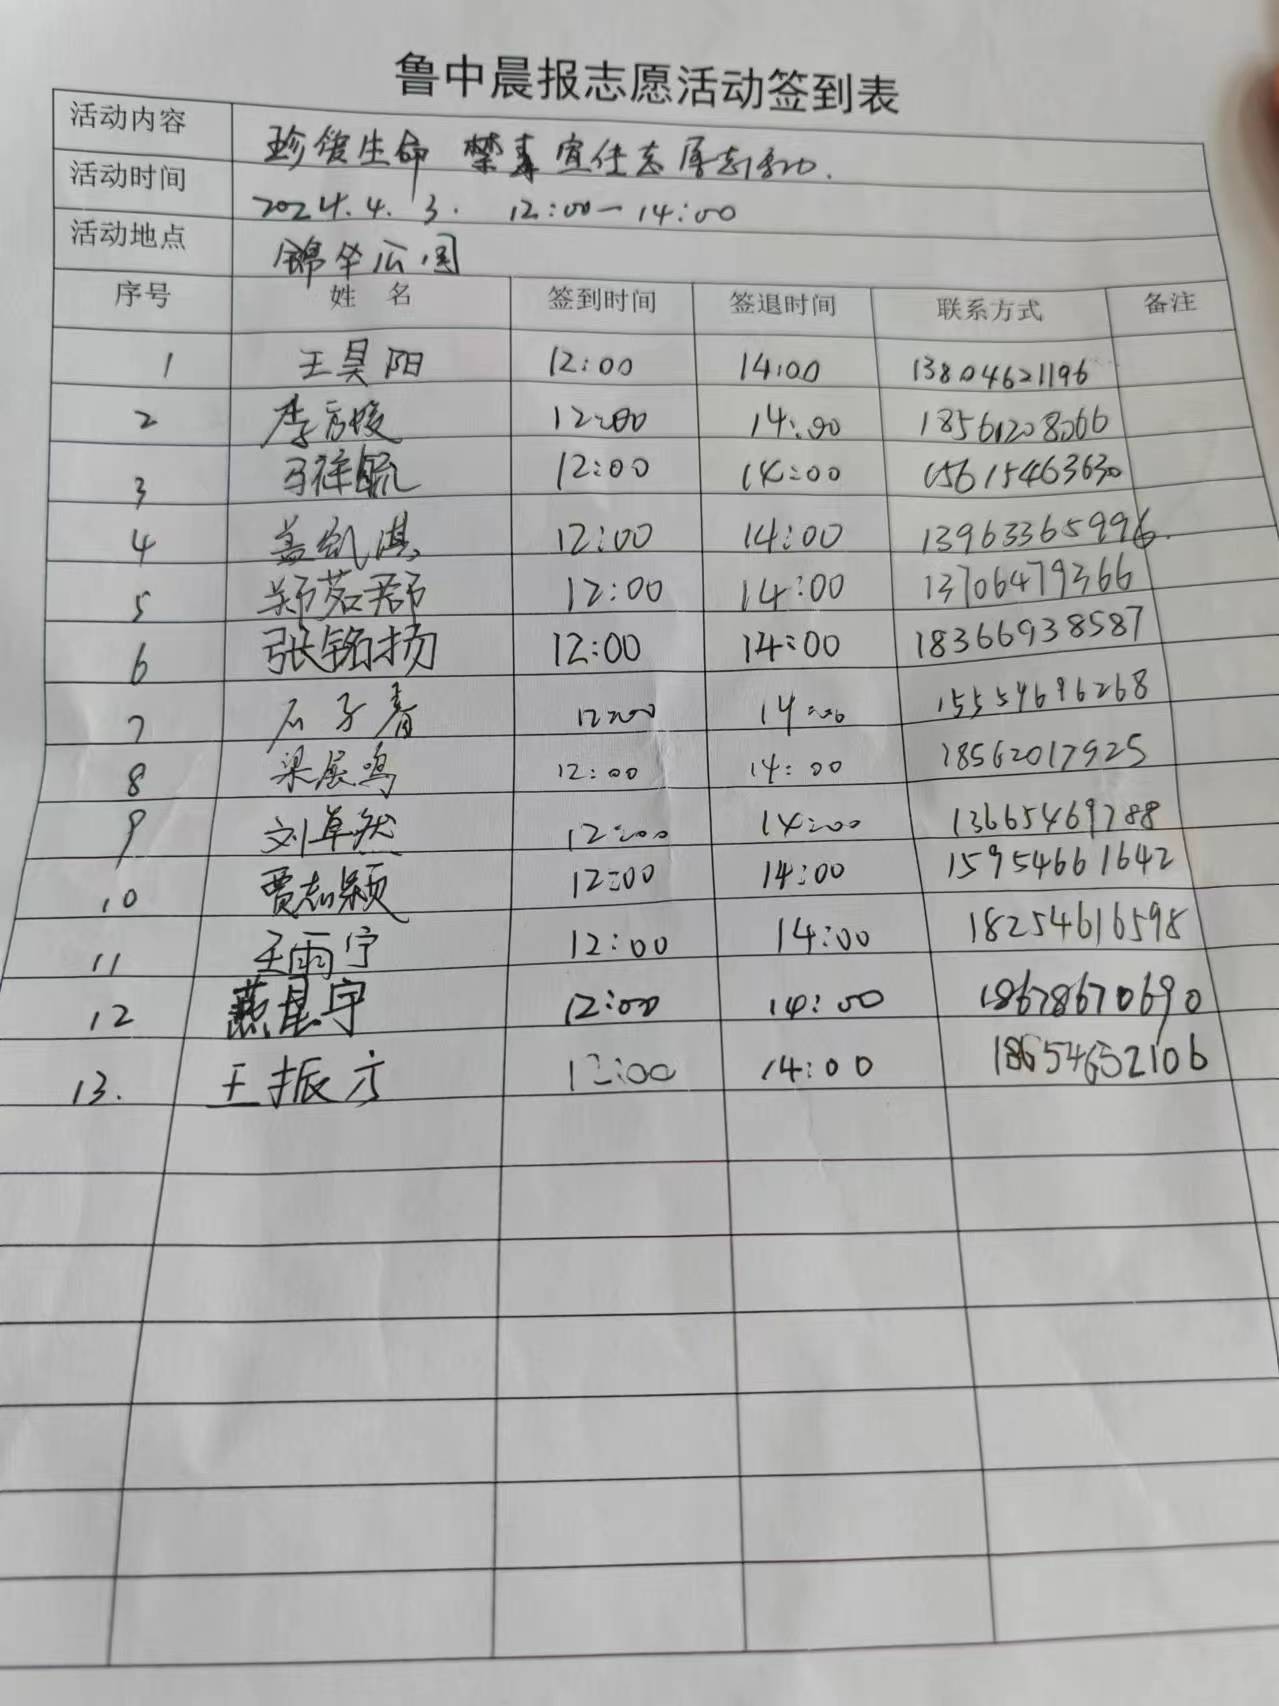 鲁中晨报志愿活动签到表
活动内容 珍爱生命 禁毒宣传志愿活动.
活动时间 2024.4.3. 12:00-14:00
活动地点 锦华公园
序号 姓名 签到时间 签退时间 联系方式 备注
1 王昊阳 12:00 14:00 13804621196
2 李方媛 12:00 14:00 18561208066
3 马祥毓 12:00 14:00 15615463630
4 盖凯淇 12:00 14:00 13963365996.
5 郑茗郡 12:00 14:00 13706479366
6 张铭扬 12:00 14:00 18366938587
7 石子春 12:00 14:00 15554696268
8 梁展鸣 12:00 14:00 18562017925
9 刘卓然 12:00 14:00 13665469788
10 贾志颖 12:00 14:00 15954661642
11 王雨宁 12:00 14:00 18254616598
12 燕星宇 12:00 14:00 18678670690
13. 王振方 12:00 14:00 18654652106